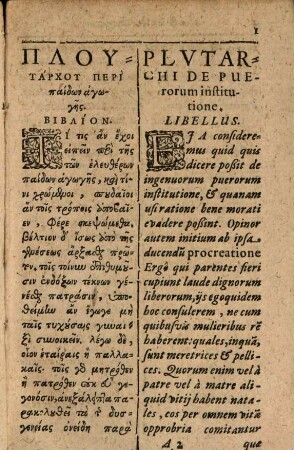 1
ΠΛΟΥ-
ΤΑΡΧΟΥ ΠΕΡΙ
παίδων ἀγω-
γῆς.
ΒΙΒΛΙΟΝ.
ΤΙ τις ἂν ἔχοι
εἰπεῖν περὶ τῆς
τῶν ἐλευθέρων
παίδων ἀγωγῆς, καὶ τί-
νι χρώμενοι, σπουδαῖοι
ἂν τοῖς τρόποις ἀποβαῖ-
εν, Φέρε σκεψώμεθα,
βέλτιον δ' ἴσως ἀπὸ τῆς
γενέσεως ἄρξασθαι πρῶ-
τον. τοῖς τοίνυν ἐπιθυμοῦ-
σιν ἐνδόξων τέκνων γε-
νέσθαι πατράσιν, ὑπο-
θείμην ἂν ἔγωγε μὴ
ταῖς τυχούσαις γυναι-
ξὶ συνοικεῖν. λέγω δὲ,
οἷον ἑταίραις ἢ παλλα-
καῖς. τοῖς γὰρ μητρόθεν
ἢ πατρόθεν οὐκ εὖ γε-
γονόσιν, ἀνεξάλειπτα πα-
ρακολουθεῖ τὰ τῆς δυσ-
γενείας ὀνείδη παρὰ
PLVTAR-
CHI DE PVE-
rorum institu-
tione,
LIBELLUS.
EJA considere-
mus quid quis
dicere possit de
ingenuorum puerorum
institutione, & quanam
usi ratione bene morati
evadere possint. Opinor
autem initium ab ipsa
ducendũ procreatione
Ergò qui parentes fieri
cupiunt laude dignorum
liberorum, ijs egoquidem
hoc consulerem, ne cum
quibusvis mulieribus rẽ
haberent: quales, inquã,
sunt meretrices & pelli-
ces. Quorum enim vel à
patre vel à matre ali-
quid vitij habent nata-
les, eos per omnem vitã
opprobria comitantur
A 2 que